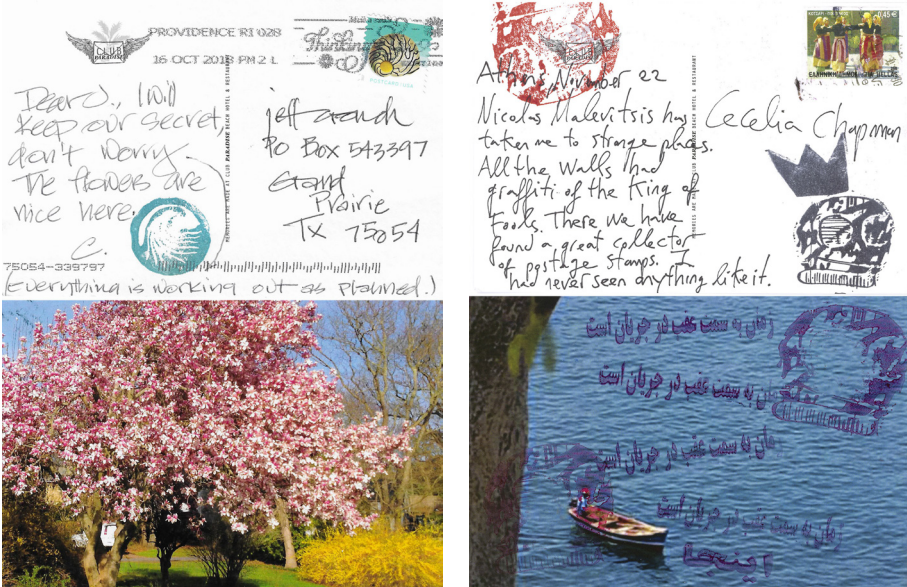 CLUB
PARADISE
PROVIDENCE RI 028
16 OCT 2018 PM 2 L
Thinking
Dear J., I will
keep our secret,
don't worry.
The flowers are
nice here.
C.
75054-339797
(Everything is working out as planned.)
MEMORIES ARE MADE AT CLUB PARADISE BEACH HOTEL & RESTAURANT
jeff crouch
PO Box 543397
Grand
Prairie
TX 75054
CLUB
PARADISE
0,45 €
ΕΛΛΗΝΙΚΗ ΔΗΜΟΚΡΑΤΙΑ HELLAS
Athens, November 22
Nicolas Malevitsis has
taken me to strange places.
All the walls had
graffiti of the King of
Fools. There we have
found a great collector
of postage stamps. I
had never seen anything like it.
MEMORIES ARE MADE AT CLUB PARADISE BEACH HOTEL & RESTAURANT
Cecelia Chapman
زمان به سمت عقب در جریان است
زمان به سمت عقب در جریان است
زمان به سمت عقب در جریان است
زمان به سمت عقب در جریان است
اینجا